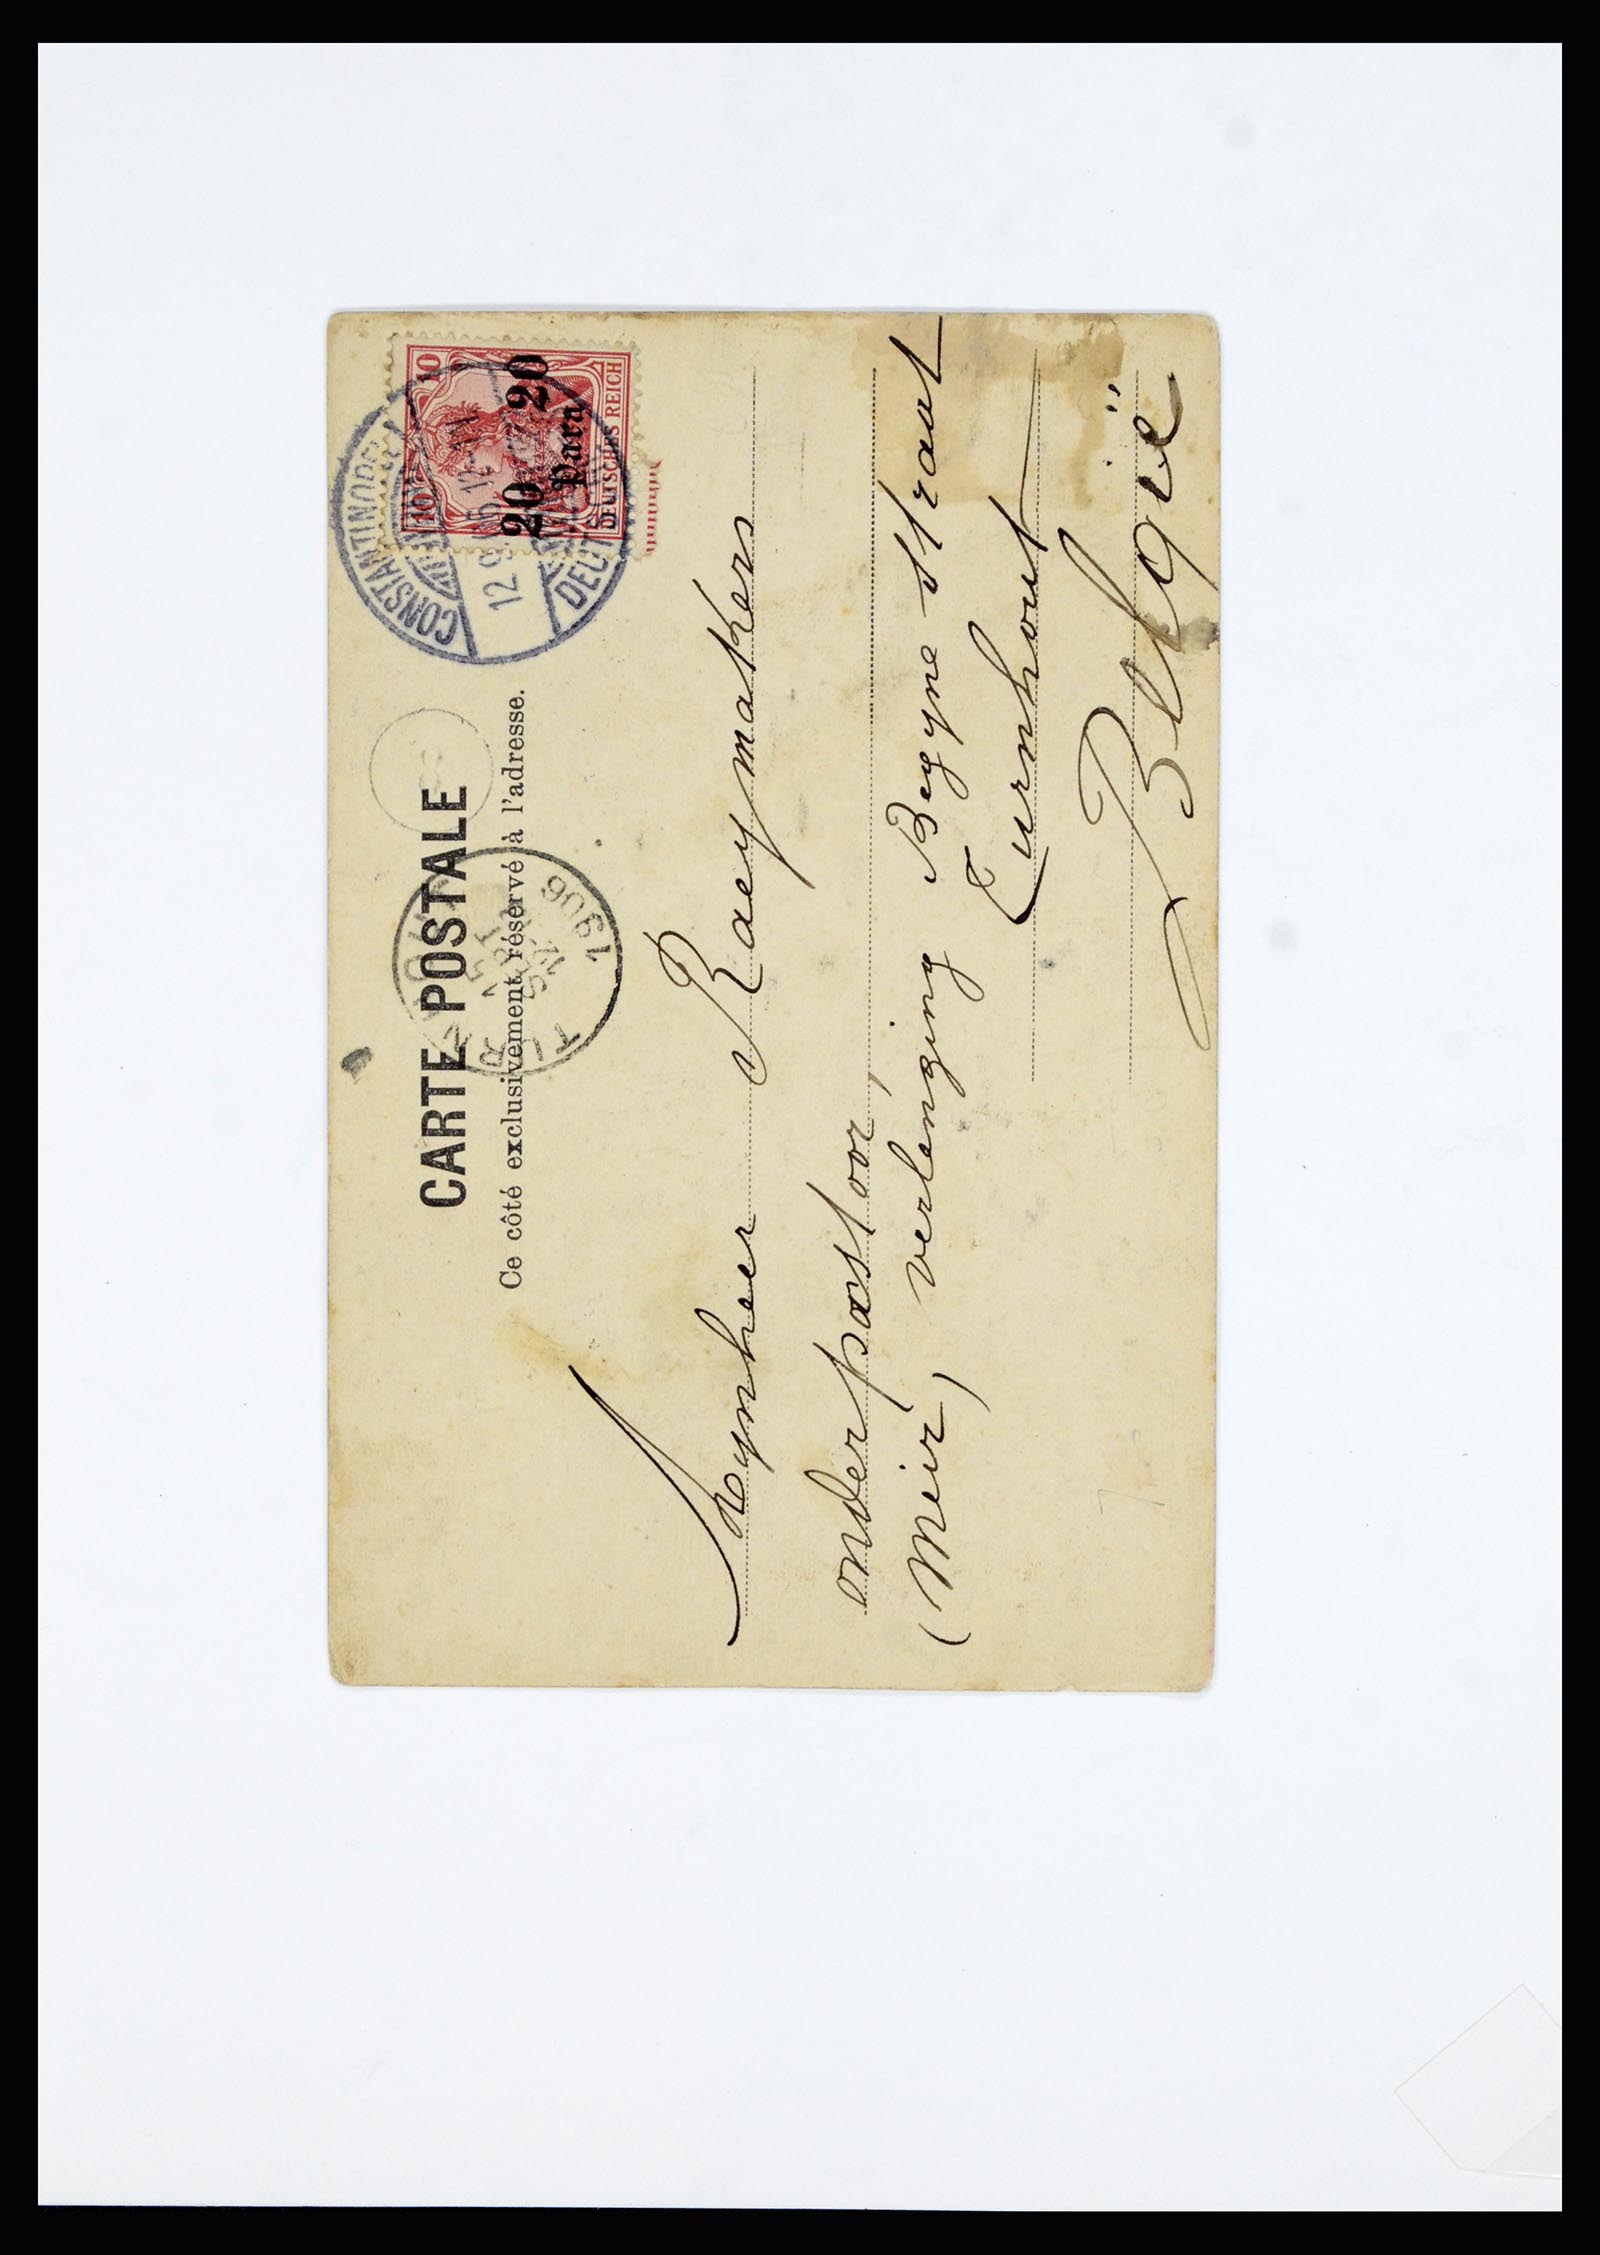 CARTE POSTALE
Ce côté exclusivement réservé à l'adresse.
10 10
20 20
Para
DEUTSCHES REICH
CONSTANTINOPEL
12 9
DEUTSCHE
1906
Mynheer Raeymakers
onderpastoor,
(Meir) verlenging Begyne straat
Turnhout
België